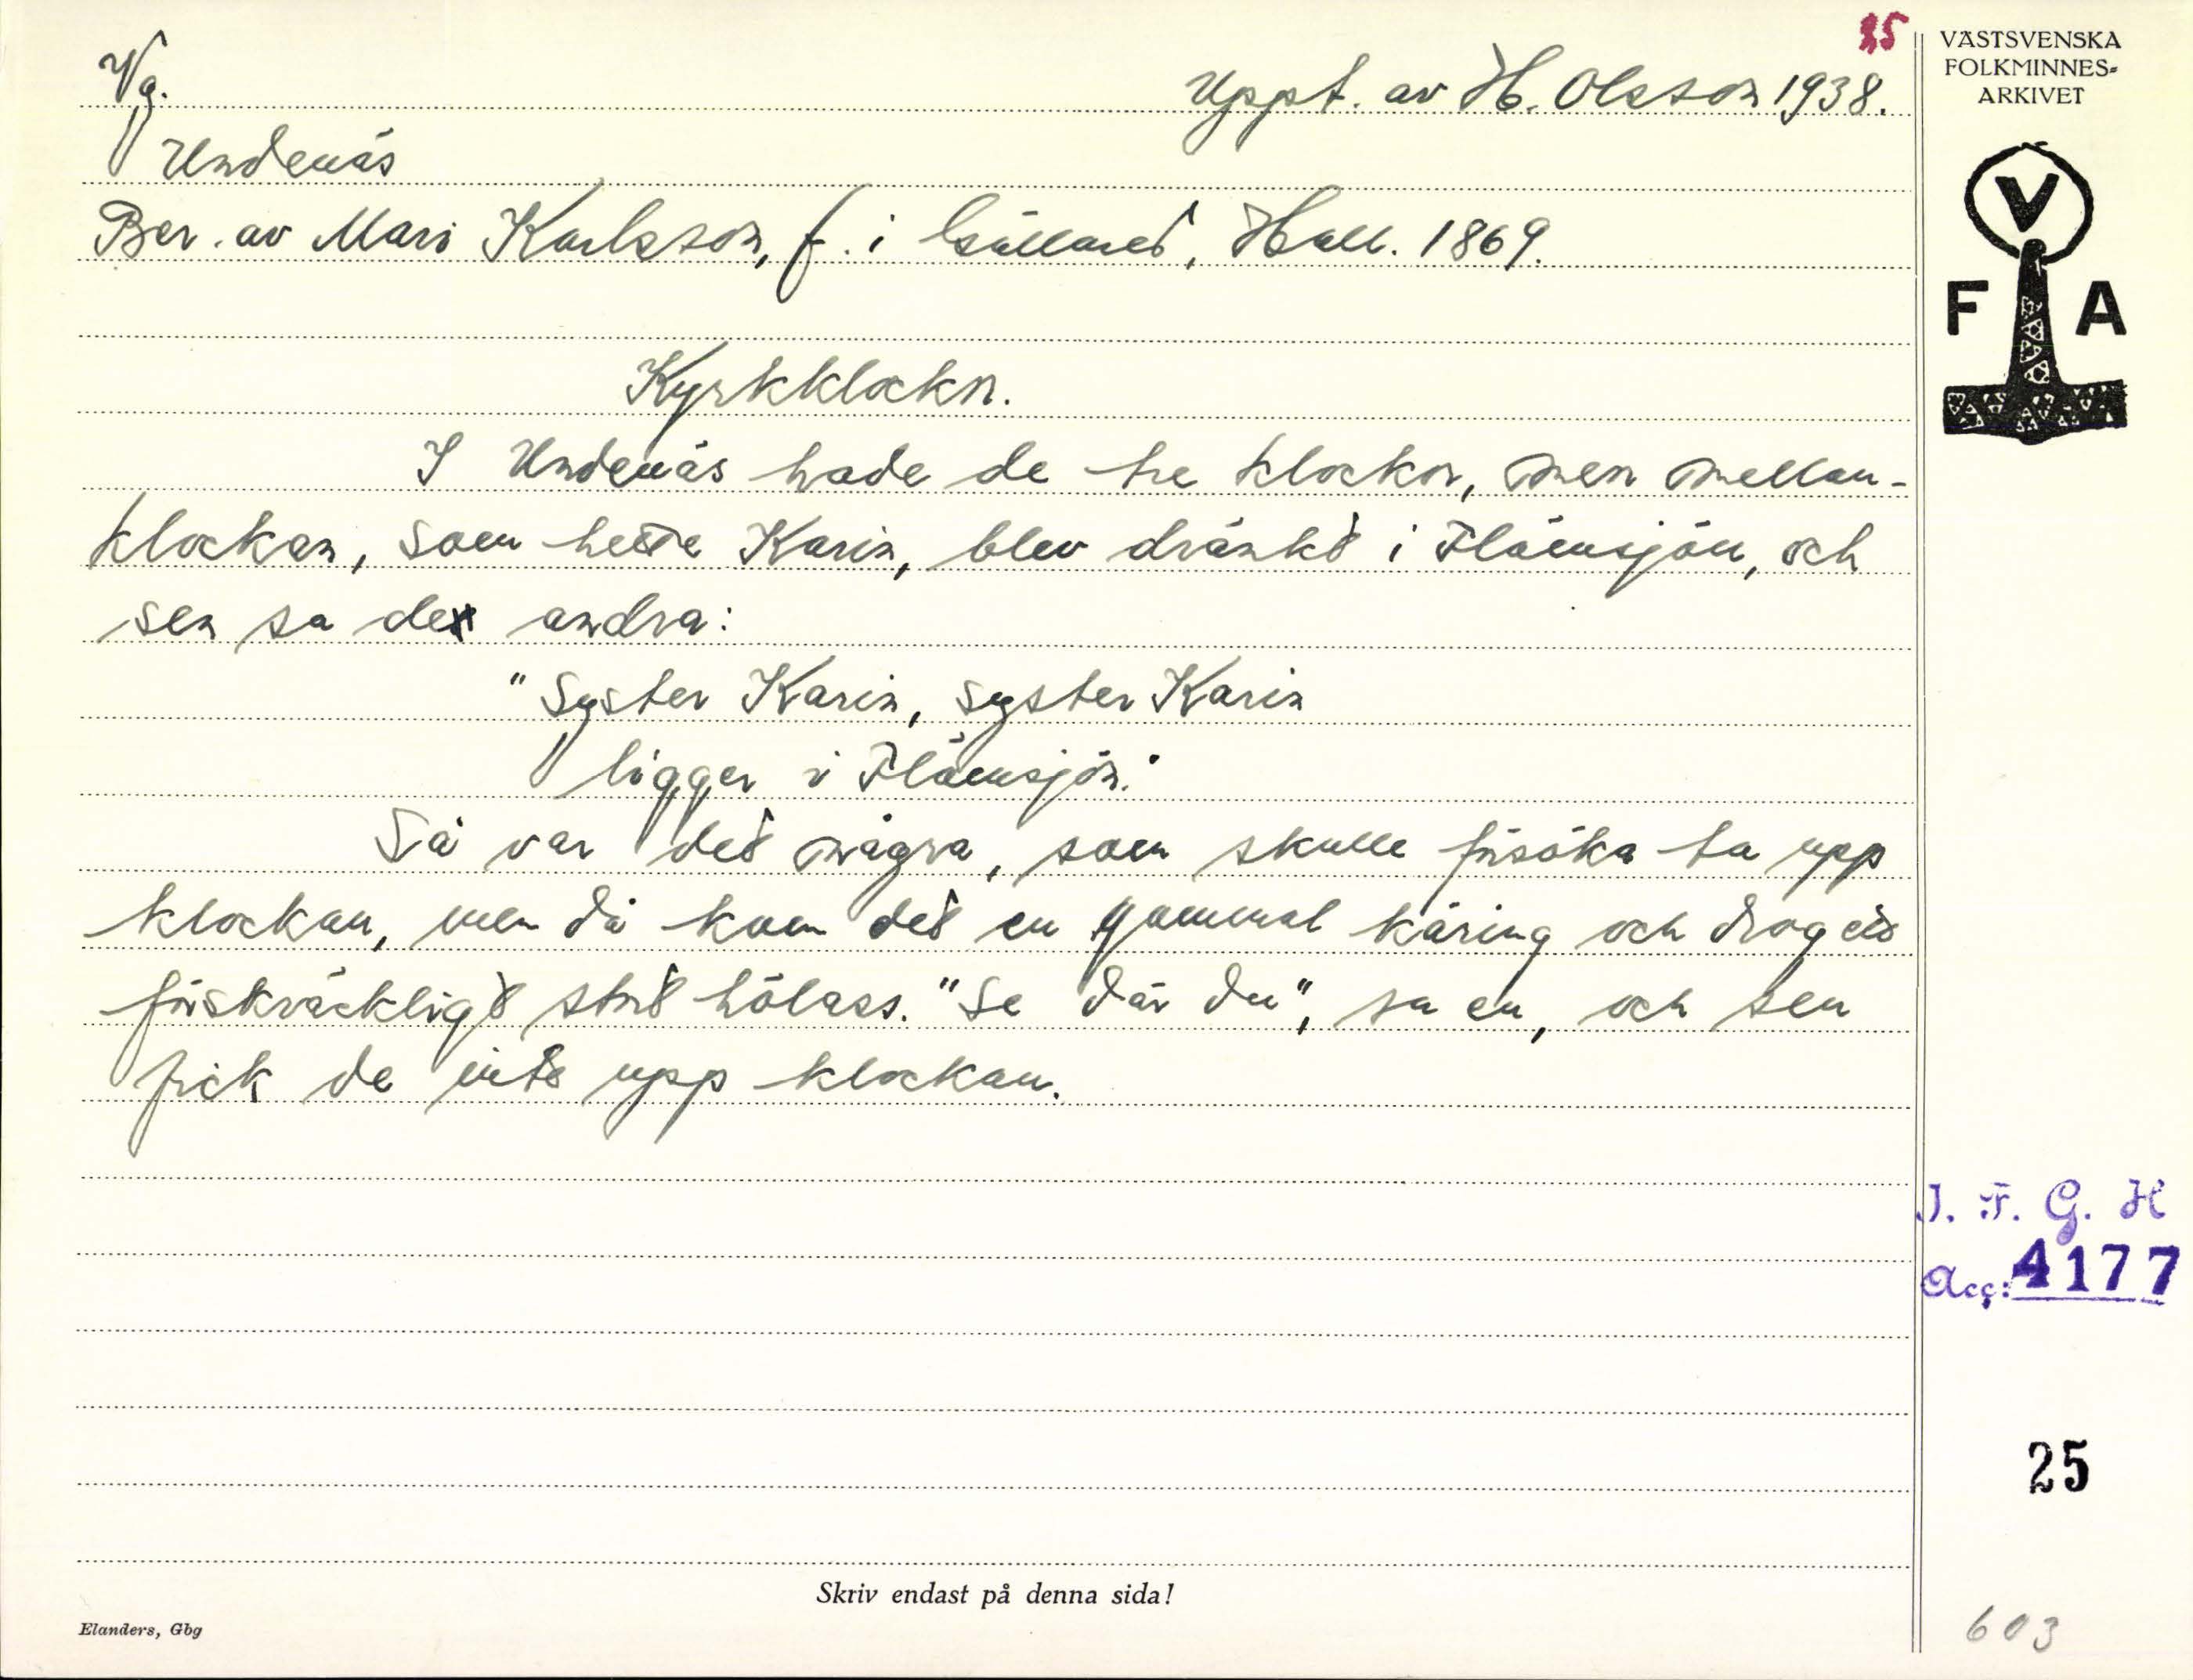 25
VÄSTSVENSKA
FOLKMINNES-
ARKIVET
Vg.
Uppt. av H. Olsson 1938.
Undenäs
Ber. av Mari Karlsson, f. i Gällared, Hall. 1869.
V
F A
Kyrkklockor.
I Undenäs hade de tre klockor, men mellan-
klockan, som hette Karin, blev dränkt i Flämsjön, och
sen sa de andra:
"Syster Karin, syster Karin
ligger i Flämsjön."
Så var det några, som skulle försöka ta upp
klockan, men då kom det en gammal käring och drog ett
förskräckligt stort hölass. "Se där du", sa en, och sen
fick de inte upp klockan.
I. F. G. H
Acc: 4177
25
Skriv endast på denna sida!
Elanders, Gbg
603